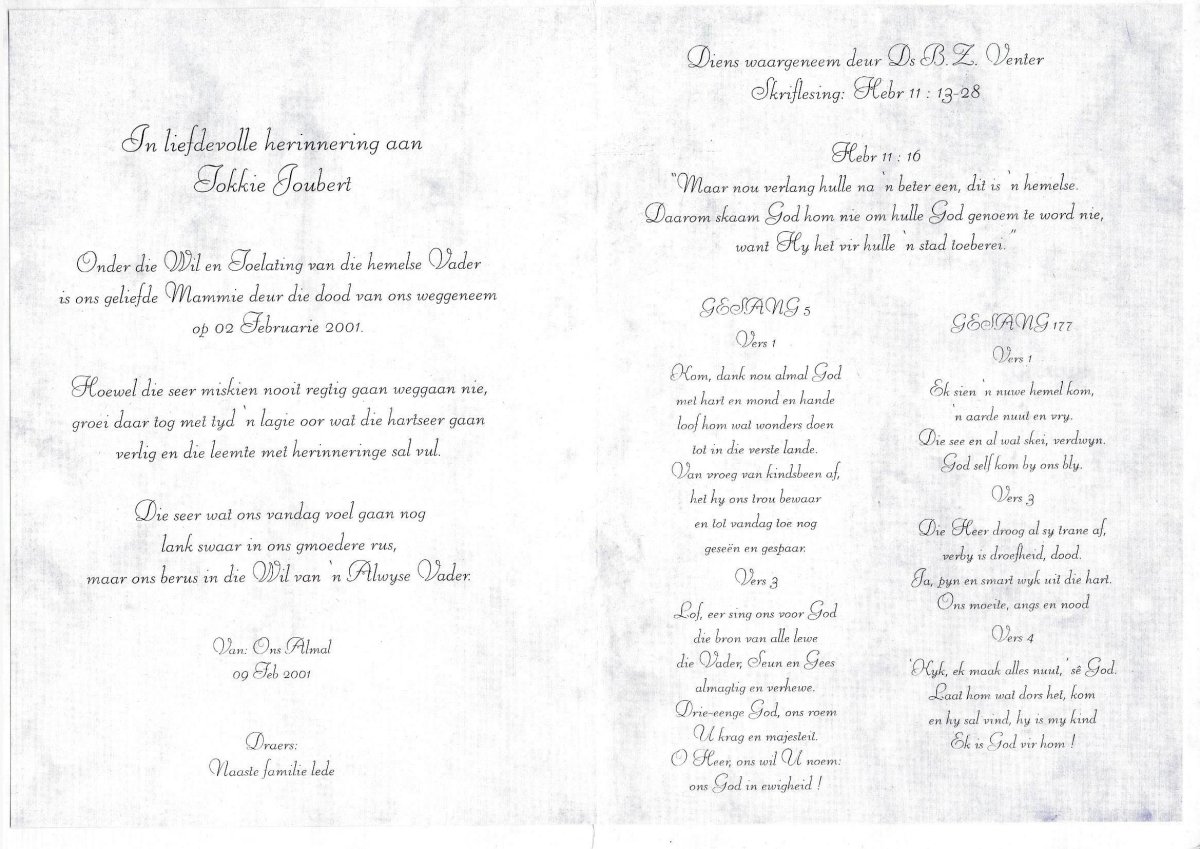 In liefdevolle herinnering aan
Tokkie Joubert
Onder die Wil en Toelating van die hemelse Vader
is ons geliefde Mammie deur die dood van ons weggeneem
op 02 Februarie 2001.
Hoewel die seer miskien nooit regtig gaan weggaan nie,
groei daar tog met tyd 'n lagie oor wat die hartseer gaan
verlig en die leemte met herinneringe sal vul.
Die seer wat ons vandag voel gaan nog
lank swaar in ons gmoedere rus,
maar ons berus in die Wil van 'n Alwyse Vader.
Van: Ons Almal
09 Feb 2001
Draers:
Naaste familie lede
Diens waargeneem deur Ds B.Z. Venter
Skriflesing: Hebr 11 : 13-28
Hebr 11 : 16
"Maar nou verlang hulle na 'n beter een, dit is 'n hemelse.
Daarom skaam God hom nie om hulle God genoem te word nie,
want Hy het vir hulle 'n stad toeberei."
GESANG 5
Vers 1
Kom, dank nou almal God
met hart en mond en hande
loof hom wat wonders doen
tot in die verste lande.
Van vroeg van kindsbeen af,
het hy ons trou bewaar
en tot vandag toe nog
geseën en gespaar.
Vers 3
Lof, eer sing ons voor God
die bron van alle lewe
die Vader, Seun en Gees
almagtig en verhewe.
Drie-eenge God, ons roem
U krag en majesteit.
O Heer, ons wil U noem:
ons God in ewigheid !
GESANG 177
Vers 1
Ek sien 'n nuwe hemel kom,
'n aarde nuut en vry.
Die see en al wat skei, verdwyn.
God self kom by ons bly.
Vers 3
Die Heer droog al sy trane af,
verby is droefheid, dood.
Ja, pyn en smart wyk uit die hart.
Ons moeite, angs en nood
Vers 4
'Kyk, ek maak alles nuut,' sê God.
Laat hom wat dors het, kom
en hy sal vind, hy is my kind
Ek is God vir hom !